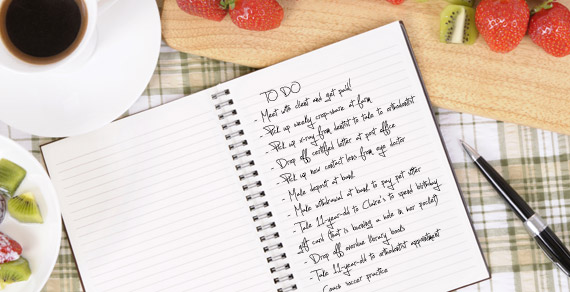 TO DO
- Meet with client and get paid!
- Pick up weekly crop-share at farm
- Pick up x-ray from dentist to take to orthodontist
- Drop off certified letter at post office
- Pick up new contact lens from eye doctor
- Make deposit at bank
- Make withdrawal at bank to pay pet sitter
- Take 11-year-old to Claire's to spend birthday
gift card (that is burning a hole in her pocket)
- Drop off overdue library books
- Take 11-year-old to orthodontist appointment
- Coach soccer practice